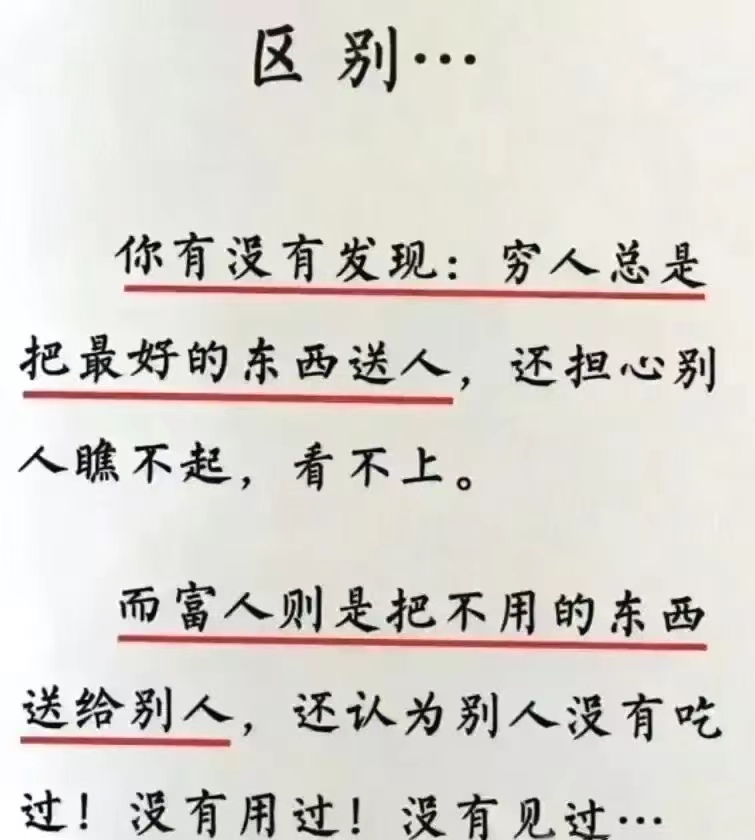 区别…
你有没有发现：穷人总是
把最好的东西送人，还担心别
人瞧不起，看不上。
而富人则是把不用的东西
送给别人，还认为别人没有吃
过！没有用过！没有见过…